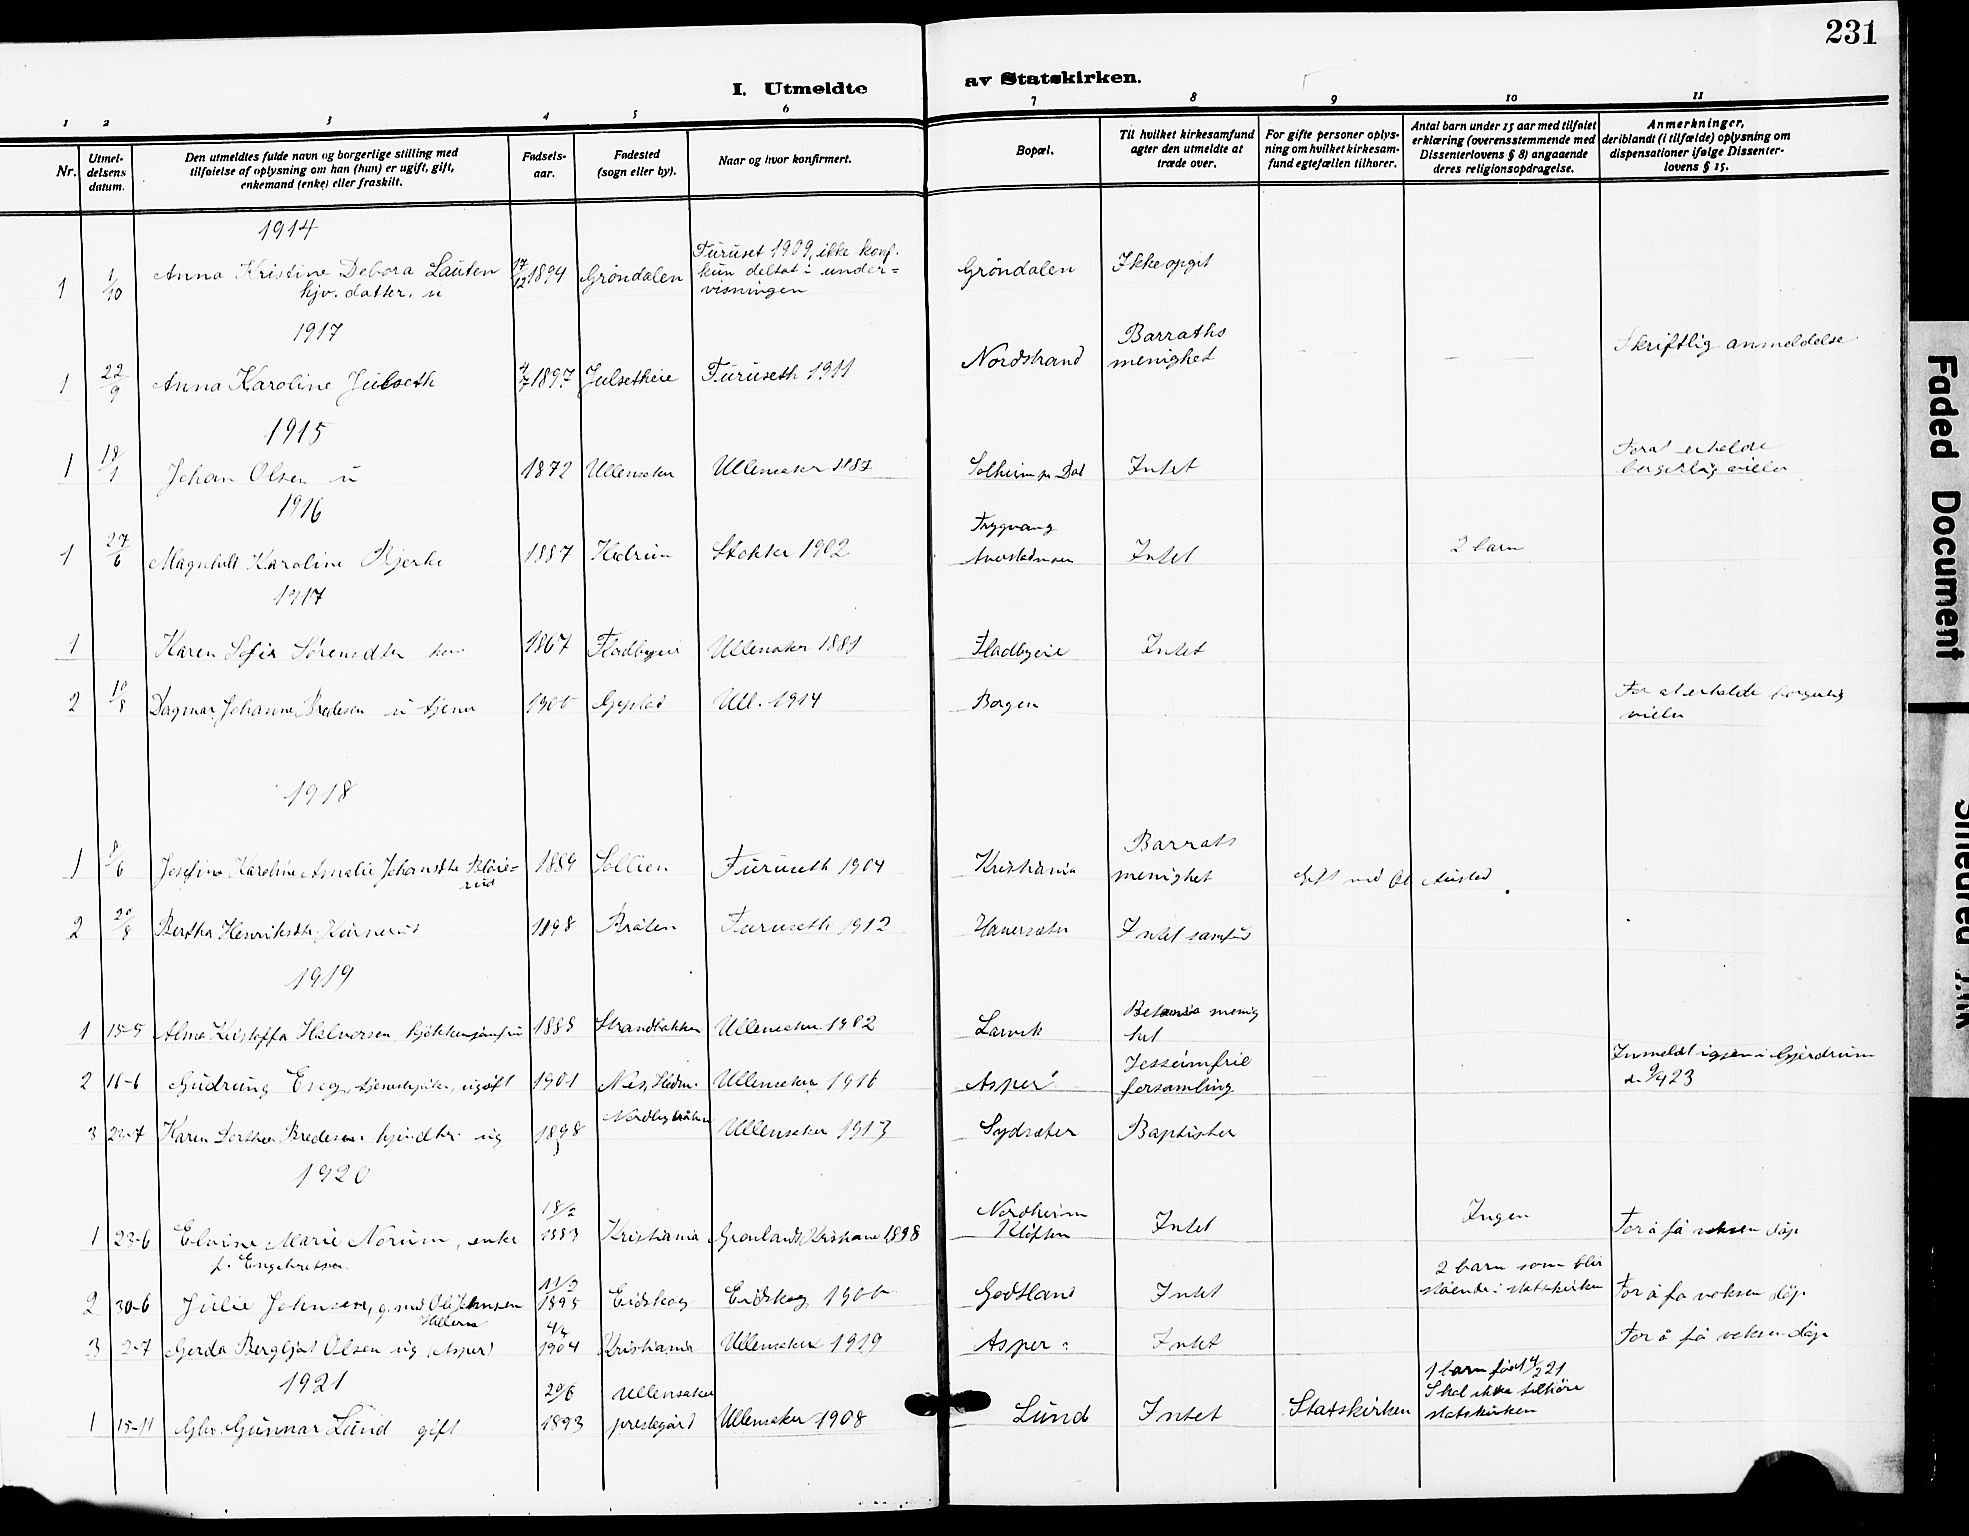 231
I. Utmeldte av Statskirken.
1 2 3 4 5 6 7 8 9 10 11
Nr.
Utmel-
delsens
datum.
Den utmeldtes fulde navn og borgerlige stilling med
tilføielse af oplysning om han (hun) er ugift, gift,
enkemand (enke) eller fraskilt.
Fødsels-
aar.
Fødested
(sogn eller by).
Naar og hvor konfirmert.
Bopæl.
Til hvilket kirkesamfund
agter den utmeldte at
træde over.
For gifte personer oplys-
ning om hvilket kirkesam-
fund egtefællen tilhører.
Antal barn under 15 aar med tilføiet
erklæring (overensstemmende med
Dissenterlovens § 8) angaaende
deres religionsopdragelse.
Anmerkninger,
deriblandt (i tilfælde) oplysning om
dispensationer ifølge Dissenter-
lovens § 15.
1914
1 1/10 Anna Kristine Debora Lauten 17/12 1894 Gröndalen Furuset 1909, ikke konf. Gröndalen Ikke opgit
hjv. datter. u kun deltat i under=
visningen
1917
1 22/9 Anna Karoline Julseth 4/7 1897 Julsetheie Furuseth 1911 Nordstrand Barraths Skriftlig anmeldelse
menighet
1915
1 18/1 Johan Olsen u 1872 Ullensaker Ullensaker 1887 Solheim pr Dal Intet For at erholde
borgerlig vielse
1916
1 27/6 Magnhild Karoline Bjerke 1887 Hedrum Stokke 1902 Trygvang Intet 2 barn
1917
1 Karen Sofie Sørensdtr 1867 Fladbyeie Ullensaker 1881 Fladbyeie Intet
2 10/8 Dagmar Johanne Bredesen u tjener 1900 Gystad Ull. 1914 Borgen For at erholde borgerlig
vielse
1918
1 8/6 Josefine Karoline Amalie Johansdtr 1889 Sollien Furuseth 1904 Kristiania Barrats
menighet Gift med
2 20/8 Bertha Henriksdtr 1898 Bråten Furuseth 1912 Hauersæter Intet samfund
1919
1 15-5 Alma Kristoffa Halvorsen, kjøkkenjomfru 1888 Strandbakken Ullensaker 1902 Larvik Betania menig
het
2 16-6 Gudrung Eng, ugift 1901 Nes, Hedm. Ullensaker 1916 Asper Jessheim frie Inmeldt igjen i Gjerdrum
forsamling d. 9/4 23
3 22-7 Karen Dorthea Bredesen ug 1898 Nordbybråten Ullensaker 1913 Sydsæter Baptister
1920
1 23-6 Elvine Marie Norum, enke 18/2 1883 Kristiania Grønlands Kristiania 1898 Nordheim Intet Ingen For å få voksen dåp.
f. Engebretsen Kløften
2 30-6 Julie Johnsen, g. med Ole Johnsen 11/2 1895 Eidskog Eidskog 1900 Godtland Intet 2 barn som blir
stående i statskirken For å få voksen dåp.
3 2-7 Gerda Bergljot Olsen ug (Asper) 1904 Kristiania Ullensaker 1919 Asper Intet For å få voksen dåp
1921
1 15-11 Gbr. Gunnar Lund gift 20/6 1893 Ullensaker
prestegård Ullensaker 1908 Lund Intet Statskirken 1 barn født 4/2 21
Skal ikke tilhøre
statskirken
Faded Document
Smeared Ink